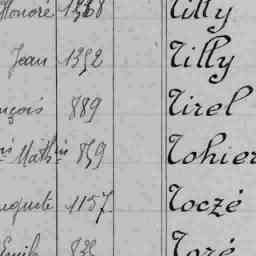 Honoré 1568 Tilly
Jean 1352 Tilly
nçois 889 Tirel
is Mathis 859 Tohier
uguste 1157 Toczé
Emile 835 Toré